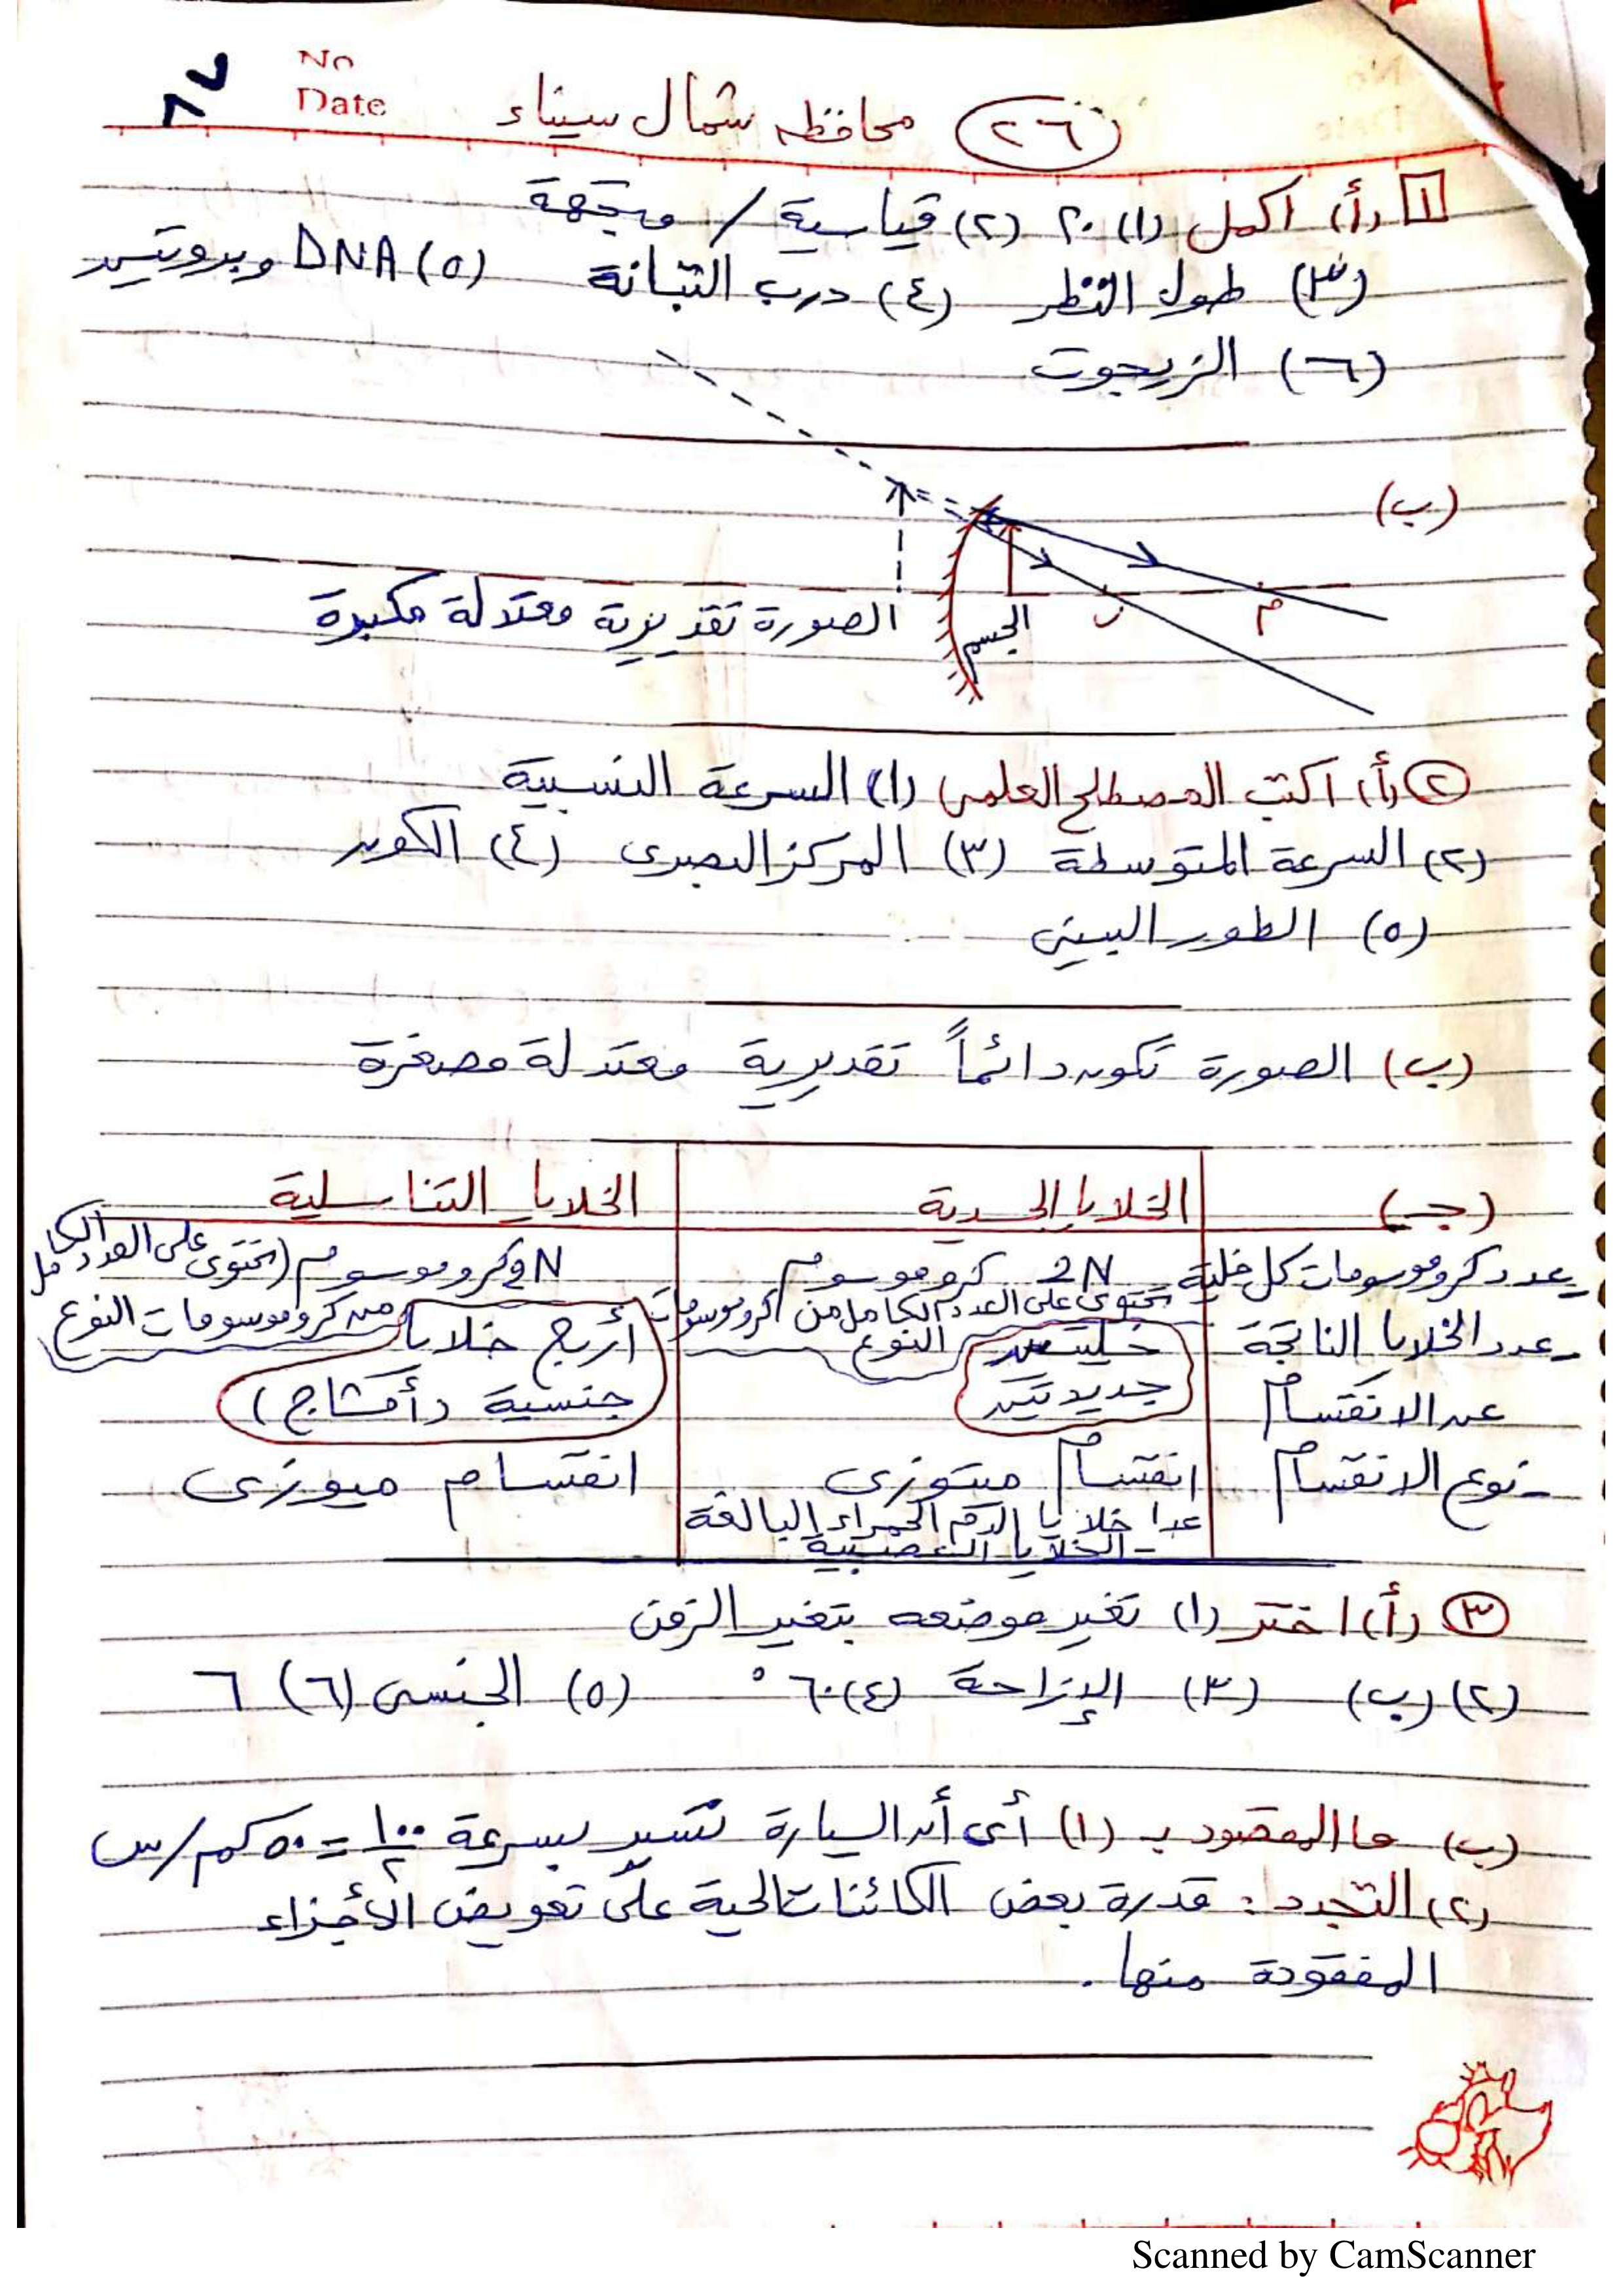 No
Date
٨٧
(٢٦) محافظة شمال سيناء
١ (أ) اكمل (١) ٢٠ (٢) قياسية / متجهة
(٣) طول النظر (٤) درب التبانة (٥) DNA وبروتين
(٦) الزيجوت
(ب)
م ن الجسم الصورة تقديرية معتدلة مكبرة
٢ (أ) اكتب المصطلح العلمى (١) السرعة النسبية
(٢) السرعة المتوسطة (٣) المركز البصرى (٤) الكون
(٥) الطور البينى
(ب) الصورة تكون دائماً تقديرية معتدلة مصغرة
(جـ) الخلايا الجسدية الخلايا التناسلية
عدد كروموسومات كل خلية 2N كروموسوم تحتوى على العدد الكامل من كروموسومات النوع
N كروموسوم (تحتوى على العدد الكامل من كروموسومات النوع
- عدد الخلايا الناتجة عن الانقسام خليتين جديدتين أربع خلايا جنسية (أمشاج)
- نوع الانقسام انقسام ميتوزى انقسام ميوزى
عدا خلايا الدم الحمراء البالغة
- الخلايا العصبية
٣ (أ) اختر (١) تغير موضعه بتغير الزمن
(٢) (ب) (٣) الإزاحة (٤) ٦٠° (٥) الجنسى (٦) ٦
(ب) ما المقصود بـ (١) أى أن السيارة تسير بسرعة ١٠٠/٢ = ٥٠ كم/س
(٢) التجدد: قدرة بعض الكائنات الحية على تعويض الأجزاء
المفقودة منها.
Scanned by CamScanner